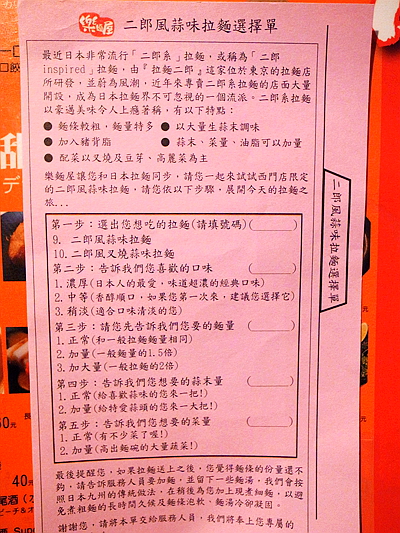 樂麵屋 二郎風蒜味拉麵選擇單
最近日本非常流行「二郎系」拉麵，或稱為「二郎
inspired」拉麵，由『拉麵二郎』這家位於東京的拉麵店
所研發，並蔚為風潮，近年來專賣二郎系拉麵的店面大量
開設，成為日本拉麵界不可忽視的一個流派。二郎系拉麵
以豪邁美味令人上癮著稱，有以下特點：
● 麵條較粗，麵量特多 ● 以大量生蒜末調味
● 加入豬背脂 ● 蒜末、菜量、油脂可以加量
● 配菜以叉燒及豆芽、高麗菜為主
樂麵屋讓您和日本拉麵同步，請您一起來試試西門店限定
的二郎風蒜味拉麵，請您依以下步驟，展開今天的拉麵之
旅...
第一步：選出您想吃的拉麵(請填號碼)
9. 二郎風蒜味拉麵
10. 二郎風叉燒蒜味拉麵
第二步：告訴我們您喜歡的口味
1. 濃厚(日本人的最愛，味道超濃的經典口味)
2. 中等(香醇順口，如果您第一次來，建議您選擇它)
3. 稍淡(適合口味清淡的您)
第三步：請您先告訴我們您要的麵量
1. 正常(和一般拉麵麵量相同)
2. 加量(一般麵量的1.5倍)
3. 加大量(一般拉麵的2倍)
第四步：告訴我們您想要的蒜末量
1. 正常(給喜歡蒜味的您來一把!)
2. 加量(給特愛蒜頭的您來一大把!)
第五步：告訴我們您想要的菜量
1. 正常(有不少菜了喔!)
2. 加量(高出麵碗的大量蔬菜!)
最後提醒您，如果拉麵送上之後，您覺得麵條的份量還不
夠，請告訴服務人員要加麵，並留下一些麵湯，我們會按
照日本九州的傳統做法，在稍後為您加上現煮細麵，以避
免煮粗麵的長時間久候及麵條泡軟、麵湯冷卻凝固。
謝謝您，請將本單交給服務人員，我們將奉上您專屬的
二郎風蒜味拉麵選擇單
甜
デ
元
40元
尾酒